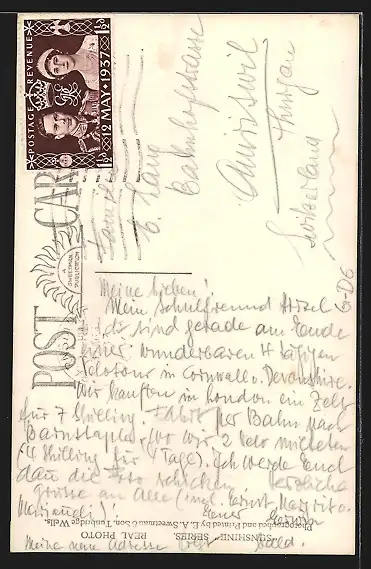 POSTAGE REVENUE
1½D
12 MAY 1937
1½D
POST CARD
A SWEETMAN PUBLICATION
Familie
E. Lang
Bahnhofstrasse
Amriswil
Thurgau
Switzerland
G-D6
Meine Lieben!
Mein Schulfreund
& ich sind gerade am Ende
einer wunderbaren 4 tägigen
Velotour in Cornwall & Devonshire.
Wir kauften in London ein Zelt
für 7 Shilling. Fahrt per Bahn nach
Barnstaple, wo wir 2 Velo mieteten
(4 Shilling für Tage). Ich werde Euch
dann die Foto schicken. Herzliche
Grüsse an Alle (inkl. Ernst, Margrit &
Mariandli)! Euer
Meine neue Adresse folgt bald.
"SUNSHINE" SERIES. REAL PHOTO
Photographed and Printed by E. A. Sweetman & Son, Tunbridge Wells.